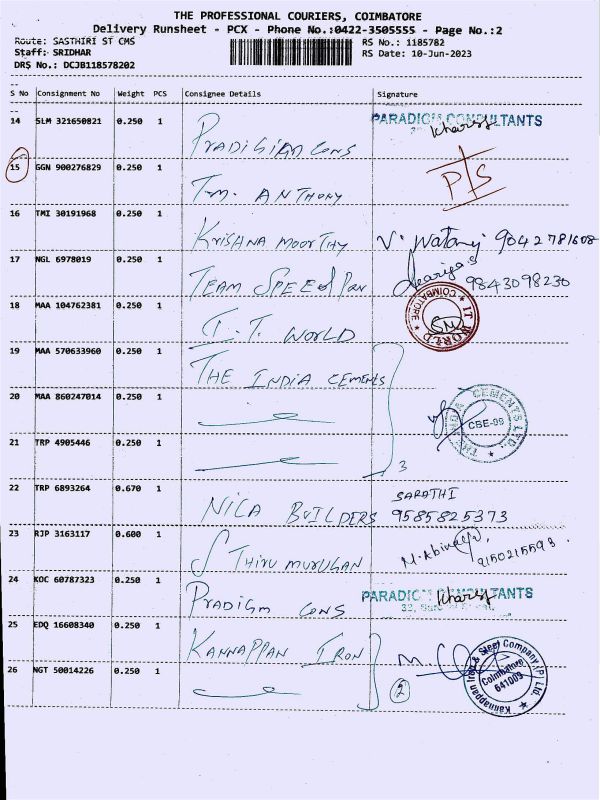 THE PROFESSIONAL COURIERS, COIMBATORE
Delivery Runsheet - PCX - Phone No.:0422-3505555 - Page No.:2
Route: SASTHIRI ST CMS RS No.: 1185782
Staff: SRIDHAR RS Date: 10-Jun-2023
DRS No.: DCJB118578202
S No Consignment No Weight PCS Consignee Details Signature
14 SLM 321650821 0.250 1 PRADIGIAM CONS PARADIGM CONSULTANTS
15 GGN 900276829 0.250 1 T.M. ANTHONY P/S
16 TMI 30191968 0.250 1 KRISHNA MOORTHY V. 9042781608
17 NGL 6978019 0.250 1 TEAM SPEED 9843098230
18 MAA 104762381 0.250 1 I.T. WORLD IT WORLD COIMBATORE
19 MAA 570633960 0.250 1 THE INDIA CEMENTS
20 MAA 860247014 0.250 1 THE INDIA CEMENTS LTD. CBE-09
21 TRP 4905446 0.250 1 3
22 TRP 6893264 0.670 1 NILA BUILDERS SARATHI 9585825373
23 RJP 3163117 0.600 1 S THIRUMURUGAN M. 9150215593
24 KOC 60787323 0.250 1 PRADIGM CONS PARADIGM CONSULTANTS
25 EDQ 16608340 0.250 1 KANNAPPAN IRON
26 NGT 50014226 0.250 1 2 Kannappan Iron & Steel Company (P) Ltd. Coimbatore 641009